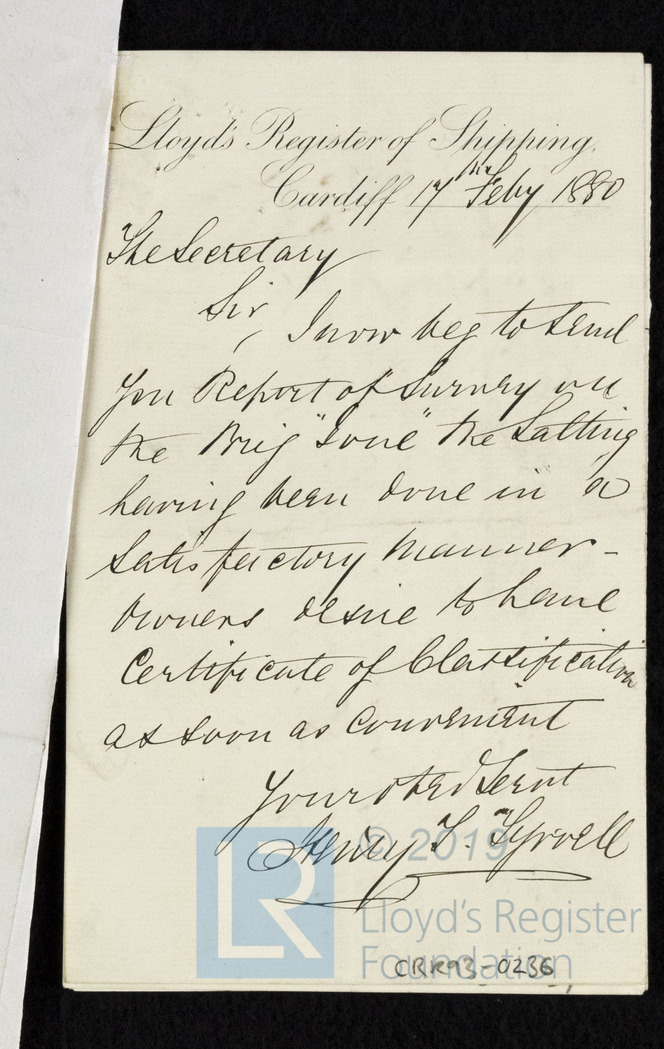 Lloyd's Register of Shipping,
Cardiff 17th Feby 1880
The Secretary
Sir,
I now beg to send
you Report of Survey on
the Brig "Ione" the Salting
having been done in a
satisfactory manner -
owners desire to have
Certificate of Classification
as soon as convenient
Your obed Servt
Henry T. Tyrrell
© 2019
LR
Lloyd's Register
Foundation
CRR93-0236